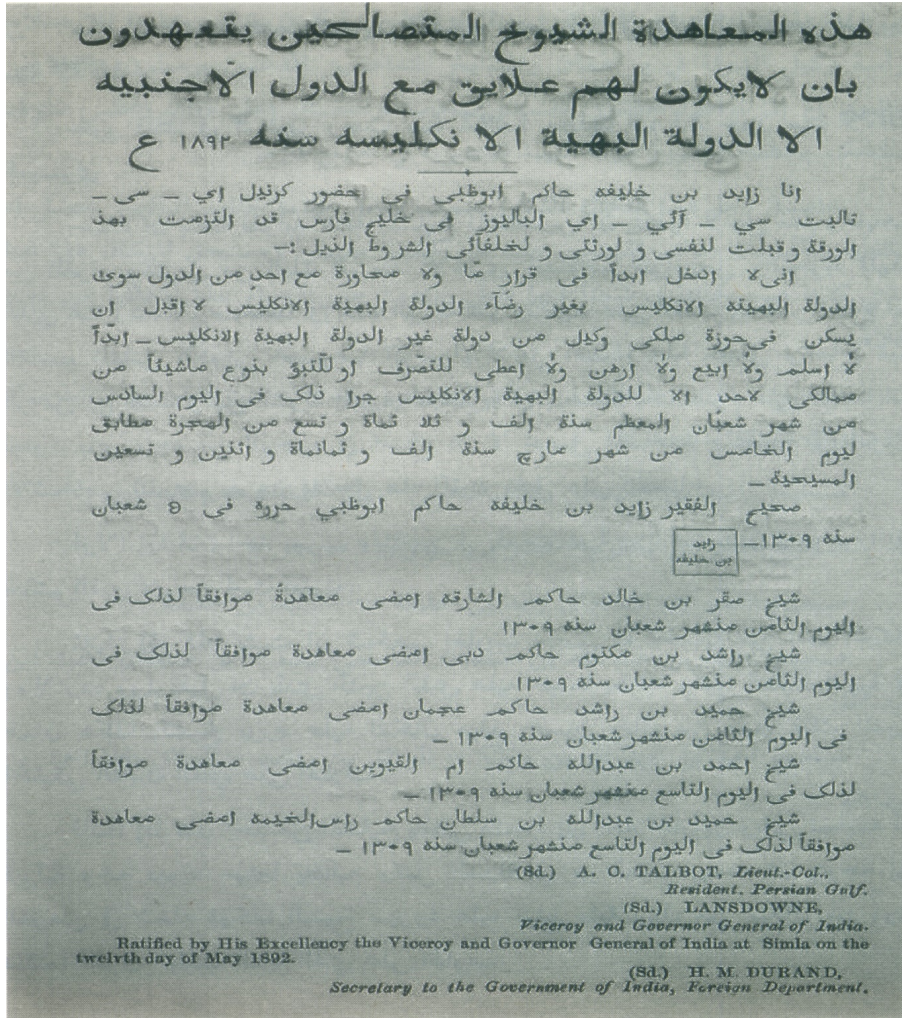 هذه المعاهدة الشيوخ المتصالحين يتعهدون
بان لايكون لهم علايق مع الدول الاجنبيه
الا الدولة البهية الا نكليسه سنه ١٨٩٢ ع
انا زايد بن خليفه حاكم ابوظبی فی حضور كرنيل اي – سی –
تالبت سي – آئي – اي الباليوز فی خليج فارس قد التزمت بهذ
الورقة و قبلت لنفسی و لورثتی و لخلفائی الشروط الذيل :–
انی لا ادخل ابداً فی قرار مّا ولا محاورة مع احد من الدول سوی
الدولة البهيته الانكليس بغير رضآء الدولة البهية الانكليس لا اقبل ان
يسكن فی حوزة ملكی وكيل من دولة غير الدولة البهية الانكليس – ابدّاً
لا اسلم ولا ابيع ولا ارهن ولا اعطی للتصّرف او للتبؤ بنوع ماشيئاً من
ممالكی لاحد الا للدولة البهية الانكليس جرا ذلک فی اليوم السادس
من شهر شعبان المعظم سنة الف و ثلا ثماة و تسع من الهجرة مطابق
ليوم الخامس من شهر مارچ سنة الف و ثمانماة و اثنين و تسعين
المسيحية –
صحيح الفقير زايد بن خليفه حاكم ابوظبي حرره فی ٥ شعبان
سنه ١٣٠٩–
زايد
بن خليفه
شيخ صقر بن خالد حاكم الشارقه امضی معاهدةً موافقاً لذلک فی
اليوم الثامن منشهر شعبان سنه ١٣٠٩
شيخ راشد بن مكتوم حاكم دبی امضی معاهدة موافقاً لذلک فی
اليوم الثامن منشهر شعبان سنه ١٣٠٩
شيخ حميد بن راشد حاكم عجمان امضی معاهدة موافقاً لذلک
فی اليوم الثامن منشهر شعبان سنه ١٣٠٩ –
شيخ احمد بن عبدالله حاكم ام القيوين امضی معاهدة موافقاً
لذلک فی اليوم التاسع منشهر شعبان سنه ١٣٠٩ –
شيخ حميد بن عبدالله بن سلطان حاكم راس الخيمه امضی معاهدة
موافقاً لذلک فی اليوم التاسع منشهر شعبان سنه ١٣٠٩ –
(Sd.) A. C. TALBOT, Lieut.-Col.,
Resident, Persian Gulf.
(Sd.) LANSDOWNE,
Viceroy and Governor General of India.
Ratified by His Excellency the Viceroy and Governor General of India at Simla on the
twelvth day of May 1892.
(Sd.) H. M. DURAND,
Secretary to the Government of India, Foreign Department.